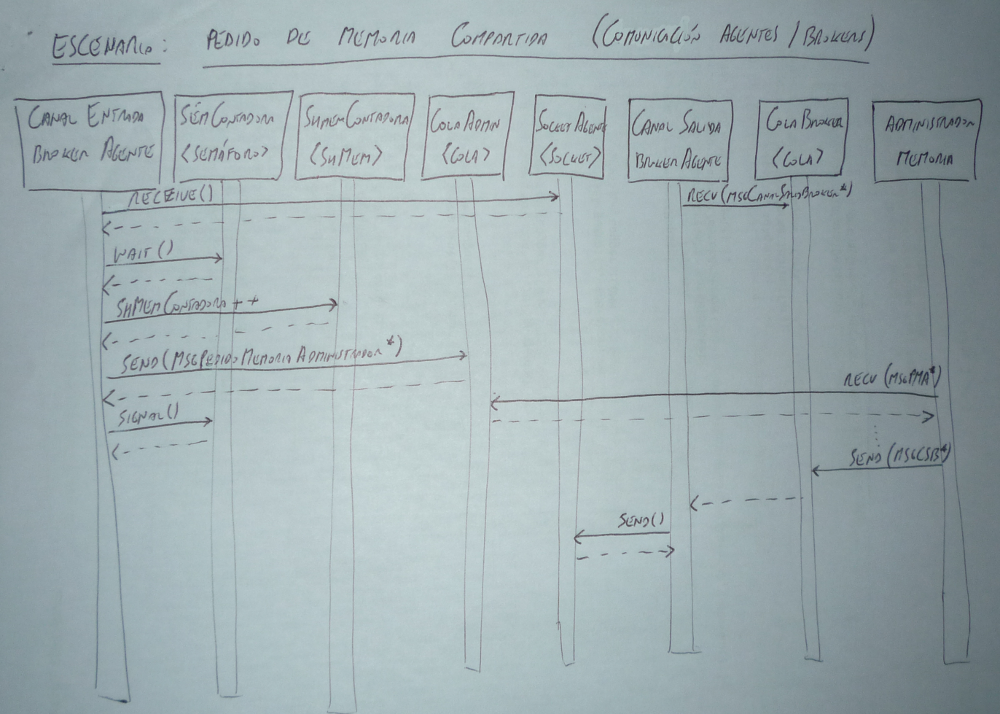 ESCENARIO: PEDIDO DE MEMORIA COMPARTIDA (COMUNICACIÓN AGENTES / BROKERS)
CANAL ENTRADA
BROKER AGENTE
SEM CONTADORA
<SEMÁFORO>
SHMEM CONTADORA
<SHMEM>
COLA ADMIN
<COLA>
SOCKET AGENTE
<SOCKET>
CANAL SALIDA
BROKER AGENTE
COLA BROKER
<COLA>
ADMINISTRADOR
MEMORIA
RECEIVE()
RECV (MSGCANALSALIDABROKER*)
WAIT()
SHMEMCONTADORA ++
SEND (MSGPEDIDOMEMORIAADMINISTRADOR*)
RECV (MSGPMA*)
SIGNAL()
SEND (MSGCSB*)
SEND()